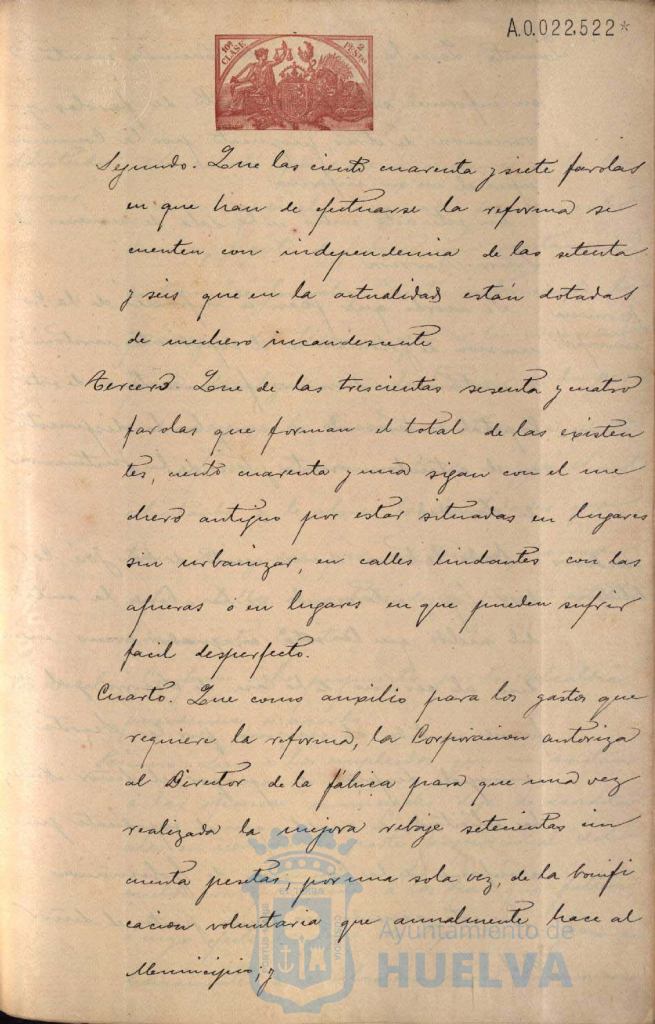 A.0.022,522*
10ª CLASE 2 PESETAS
Segundo. Que las ciento cuarenta y siete farolas
en que han de efectuarse la reforma se
cuenten con independencia de las setenta
y seis que en la actualidad están dotadas
de mechero incandescente
Tercero. Que de las trescientas sesenta y cuatro
farolas que forman el total de las existen
tes, ciento cuarenta y una sigan con el me
chero antiguo por estar situadas en lugares
sin urbanizar, en calles lindantes con las
afueras ó en lugares en que pueden sufrir
facil desperfecto.
Cuarto. Que como auxilio para los gastos que
requiere la reforma, la Corporacion autoriza
al Director de la fábrica para que una vez
realizada la mejora rebaje setecientas cin
cuenta pesetas, por una sola vez, de la bonifi
cacion voluntaria que anualmente hace al
Municipio; y
Ayuntamiento de
HUELVA